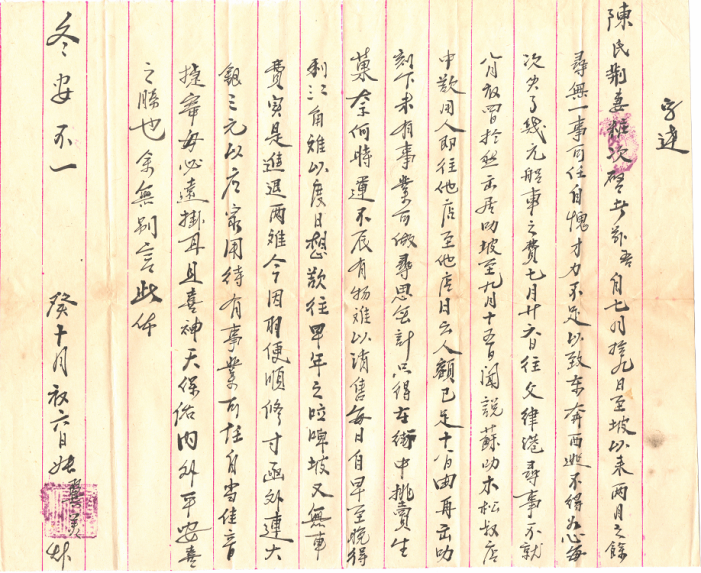 字達
陳氏荊妻粧次啓者茲吾自七月拾九日至坡以來兩月之餘
尋無一事可任自愧才力不足以致東奔西走不得如心每
次失了幾元船車之費七月廿六日往文律港尋事不就
八月初四日於 居叻坡至九月十五日聞說蘇叻木松叔店
中欲用人即往他店至他店日云人額已足十八日由再 叻
刻下未有事業可做尋思無計只得在街中挑賣生
菓奈何時運不辰有物難以消售每日自早至晚得
利三角难以度日想欲往早年之咬 坡又無車
費實是進退兩难今因羽便順修寸函外連大
銀三元以应家用待有事業可任自當佳音
捷寄毋必遠掛耳且喜神天保佑內外平安喜
之勝也余無別言此佈
冬安不一
癸十月初六日